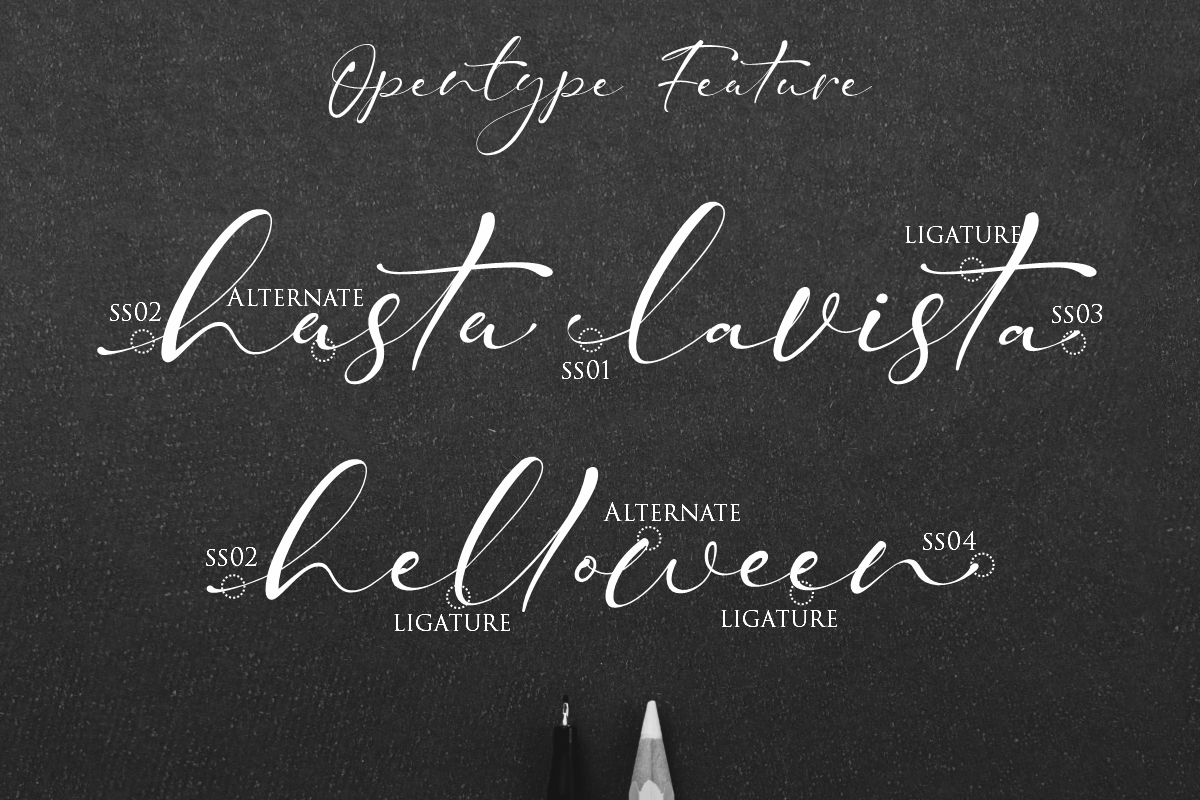 Opentype Feature
LIGATURE
SS02 ALTERNATE SS03
hasta lavista
SS01
ALTERNATE
SS02 SS04
helloween
LIGATURE LIGATURE